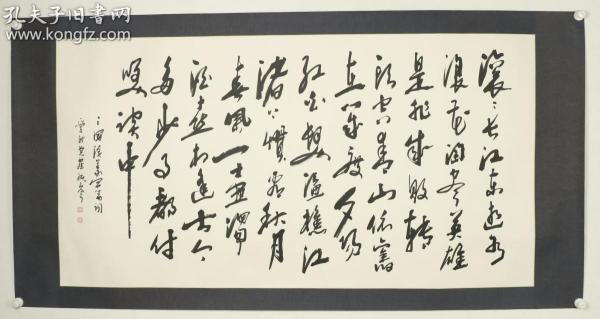 孔夫子旧书网
www.kongfz.com
滚滚长江东逝水
浪花淘尽英雄
是非成败转
头空青山依旧
在几度夕阳
红白发渔樵江
渚上惯看秋月
春風一壶浊
酒喜相逢古今
多少事都付
笑谈中
三国演义开篇词